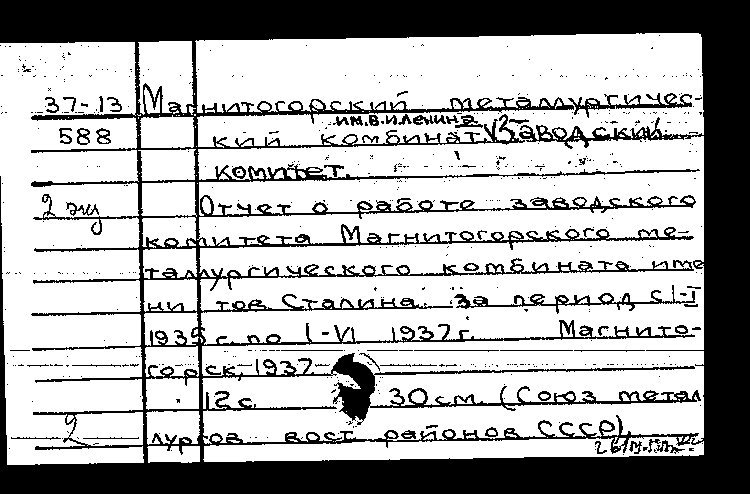 37-13 Магнитогорский металлургичес-
им. В.И. Ленина
588 кий комбинат. Заводский
комитет.
2 экз Отчет о работе заводского
комитета Магнитогорского ме-
таллургического комбината име
ни тов Сталина за период с I-I
1935 г. по I-VI 1937 г. Магнито-
горск, 1937
12 с. 30 см. (Союз метал
2 лургов вост районов СССР).